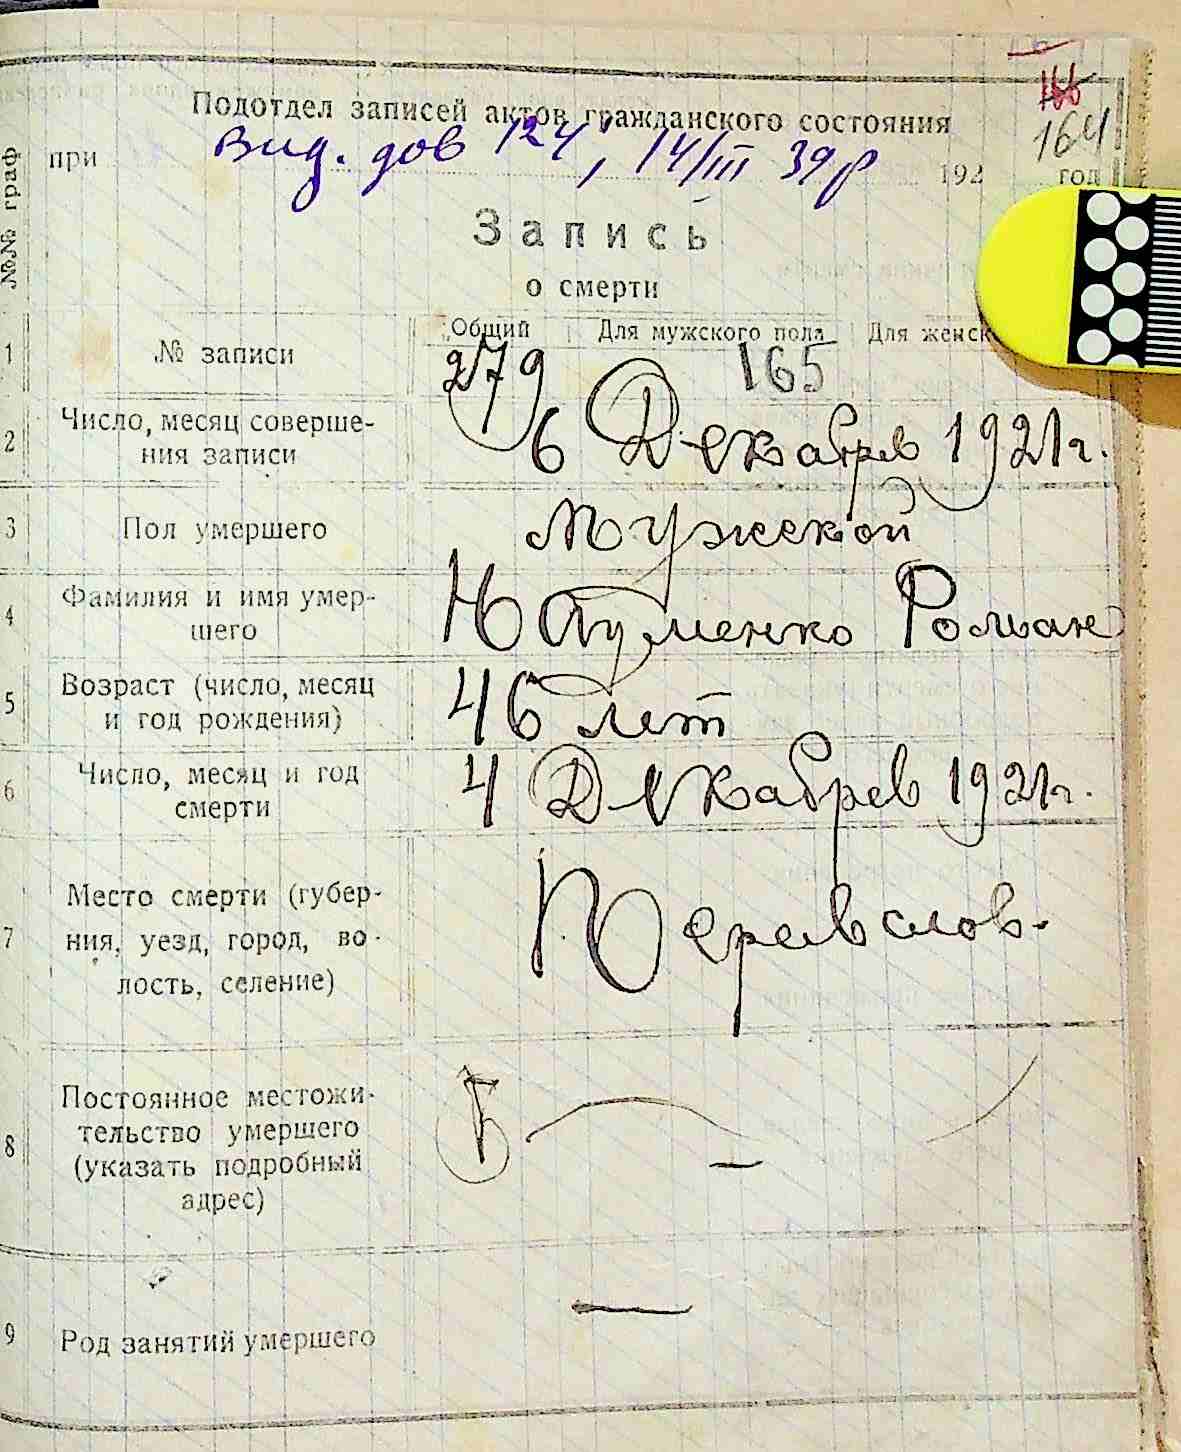 166
164
Подотдел записей актов гражданского состояния
Вид. дов 124, 14/III 39р
при 192 год
№№ граф
Запись
о смерти
Общий Для мужского пола Для женск
1 № записи 279 165
2 Число, месяц соверше-
ния записи 6 Декабрев 1921г.
3 Пол умершего Мужской
4 Фамилия и имя умер-
шего Науменко Роман
5 Возраст (число, месяц
и год рождения) 46 лет
6 Число, месяц и год
смерти 4 Декабрев 1921г.
7 Место смерти (губер-
ния, уезд, город, во-
лость, селение) Перевалов.
8 Постоянное местожи-
тельство умершего
(указать подробный
адрес) —
9 Род занятий умершего —